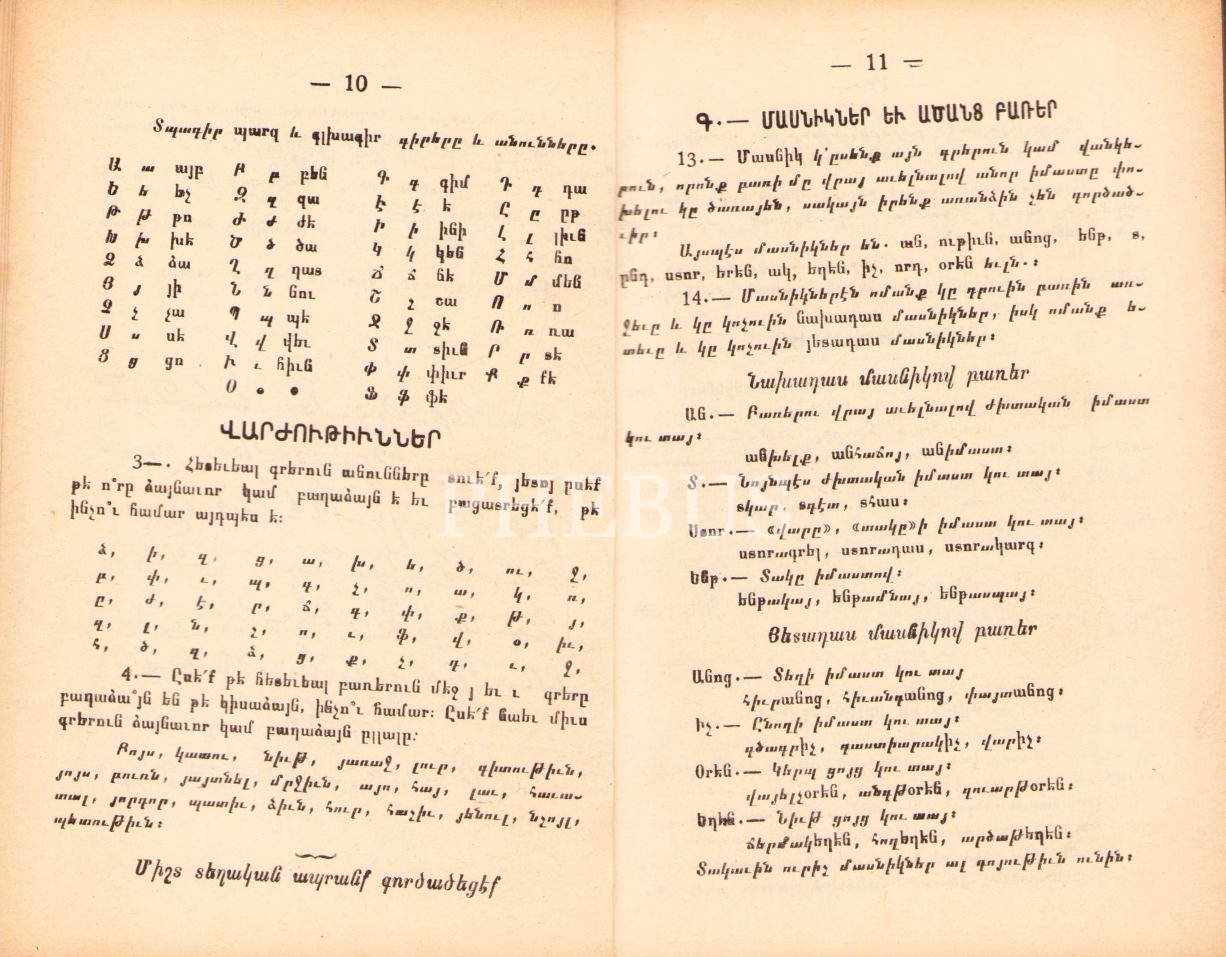 — 10 —
Տպագիր պարզ և գլխագիր գիրերը և անունները.
Ա ա այբ Բ բ բեն Գ գ գիմ Դ դ դա
Ե ե եչ Զ զ զա Է է է Ը ը ըթ
Թ թ թո Ժ ժ ժէ Ի ի ինի Լ լ լիւն
Խ խ խէ Ծ ծ ծա Կ կ կեն Հ հ հո
Ձ ձ ձա Ղ ղ ղատ Ճ ճ ճէ Մ մ մեն
Յ յ յի Ն ն նու Շ շ շա Ո ո ո
Չ չ չա Պ պ պէ Ջ ջ ջէ Ռ ռ ռա
Ս ս սէ Վ վ վեւ Տ տ տիւն Ր ր րէ
Ց ց ցո Ւ ւ հիւն Փ փ փիւր Ք ք քէ
Օ օ օ Ֆ ֆ ֆէ
ՎԱՐԺՈՒԹԻՒՆՆԵՐ
3—. Հետեւեալ գրերուն անունները տուէ՛ք, յետոյ ըսէք
թէ ո՞րը ձայնաւոր կամ բաղաձայն է եւ բացատրեցէ՛ք, թէ
ինչո՞ւ համար այդպէս է:
ձ, ի, զ, ց, ա, խ, ե, ծ, ու, ջ,
բ, փ, ւ, պ, գ, չ, ո, ա, կ, ռ,
ը, ժ, է, ր, ճ, գ, փ, ք, թ, յ,
զ, լ, ն, շ, ո, ւ, ֆ, վ, օ, իւ,
հ, ծ, զ, ձ, ց, ք, չ, դ, ւ, ջ,
4.— Ըսէ՛ք թէ հետեւեալ բառերուն մէջ յ եւ ւ գրերը
բաղաձա՞յն են թէ կիսաձայն, ինչո՞ւ համար: Ըսէ՛ք նաեւ միւս
գրերուն ձայնաւոր կամ բաղաձայն ըլլալը:
Բոյս, կատու, նիւթ, յառաջ, լուր, գիտութիւն,
յոյս, բուռն, յայտնել, մրջիւն, այո, հայ, լաւ, հաւա-
տալ, յորդոր, պատիւ, ձիւն, հուր, հաշիւ, յենուլ, նշոյլ,
պետութիւն:
Միշտ տեղական ապրանք գործածեցէք
— 11 —
Գ.— ՄԱՍՆԻԿՆԵՐ ԵՒ ԱԾԱՆՑ ԲԱՌԵՐ
13.— Մասնիկ կ'ըսենք այն գրերուն կամ վանկե-
րուն, որոնք բառի մը վրայ աւելնալով անոր իմաստը փո-
խելու կը ծառայեն, սակայն իրենք առանձին չեն գործած-
ւիր:
Այսպէս մասնիկներ են. ան, ութիւն, անոց, ենթ, տ,
ընդ, ստոր, երեն, ակ, եղեն, իչ, որդ, օրէն եւլն.:
14.— Մասնիկներէն ոմանք կը դրուին բառին առ-
ջեւը և կը կոչուին նախադաս մասնիկներ, իսկ ոմանք ե-
տեւը և կը կոչուին յետադաս մասնիկներ:
Նախադաս մասնիկով բառեր
ԱՆ.— Բառերու վրայ աւելնալով ժխտական իմաստ
կու տայ:
անխելք, անհաճոյ, անիմաստ:
Տ.— Նոյնպէս ժխտական իմաստ կու տայ:
տկար, տգէտ, տհաս:
Ստոր.— «վարը», «տակը»ի իմաստ կու տայ:
ստորագրել, ստորադաս, ստորակարգ:
Ենթ.— Տակը իմաստով:
ենթակայ, ենթամնայ, ենթասպայ:
Յետադաս մասնիկով բառեր
Անոց.— Տեղի իմաստ կու տայ
հիւրանոց, հիւանդանոց, փայտանոց:
Իչ.— Ընողի իմաստ կու տայ:
գծագրիչ, դաստիարակիչ, վարիչ:
Օրէն.— Կերպ ցոյց կու տայ:
վայելչօրէն, անգթօրէն, զուարթօրէն:
Եղեն.— Նիւթ ցոյց կու տայ:
ճերմակեղեն, հողեղեն, արծաթեղեն:
Տակաւին ուրիշ մասնիկներ ալ գոյութիւն ունին:
PHEBUS